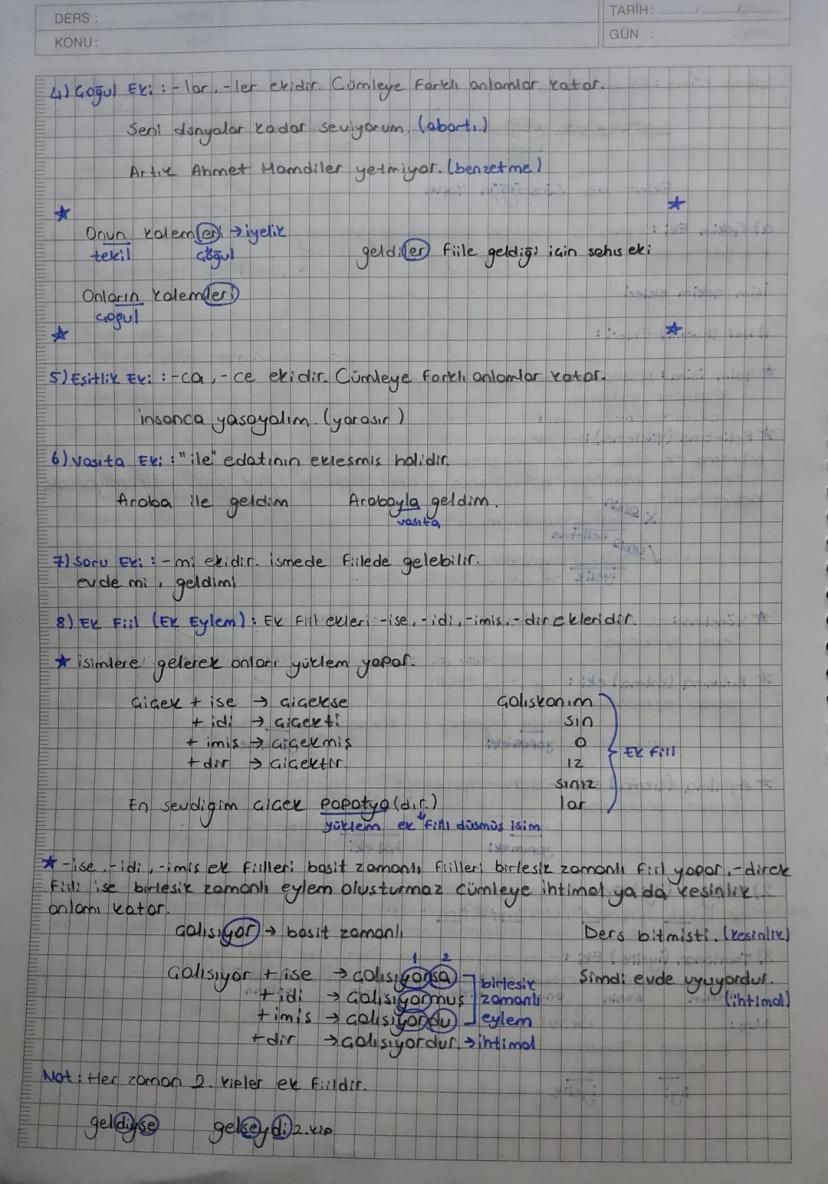 DERS :
KONU :
TARİH : / /
GÜN :
4) Çoğul Eki : -lar, -ler ekidir. Cümleye farklı anlamlar katar.
Seni dünyalar kadar seviyorum. (abartı)
Artık Ahmet Hamdiler yetmiyor. (benzetme)
Onun kalemleri → iyelik
tekil çoğul
geldiler fiile geldiği için şahıs eki
Onların kalemleri
çoğul
5) Eşitlik Eki : -ca, -ce ekidir. Cümleye farklı anlamlar katar.
insanca yaşayalım. (yaraşır)
6) Vasıta Eki : "ile" edatının ekleşmiş halidir.
Araba ile geldim Arabayla geldim.
vasıta
7) Soru Eki : -mi ekidir. ismede fiilede gelebilir.
evde mi, geldimi
8) Ek Fiil (Ek Eylem) : Ek fiil ekleri -ise, -idi, -imiş, -dir ekleridir.
★ isimlere gelerek onları yüklem yapar.
Çiçek + ise → çiçekse Çalışkanım
+ idi → çiçekti sın
+ imiş → çiçekmiş 0
+ dır → çiçektir ız
Ek fiil
sınız
En sevdiğim çiçek papatya (dır.) lar
yüklem ek fiili düşmüş isim
★ -ise, -idi, -imiş ek fiilleri basit zamanlı fiilleri birleşik zamanlı fiil yapar, -direk
fiili ise birleşik zamanlı eylem oluşturmaz cümleye ihtimal ya da kesinlik
anlamı katar.
Çalışıyor → basit zamanlı Ders bitmişti. (kesinlik)
1 2
Çalışıyor + ise → çalışıyorsa birleşik Şimdi evde uyuyordur.
+ idi → çalışıyormuş zamanlı (ihtimal)
+ imiş → çalışıyordu eylem
+ dir → çalışıyordur. → ihtimal
Not : Her zaman 2. kipler ek fiildir.
geldiyse gelseydi 2. kip